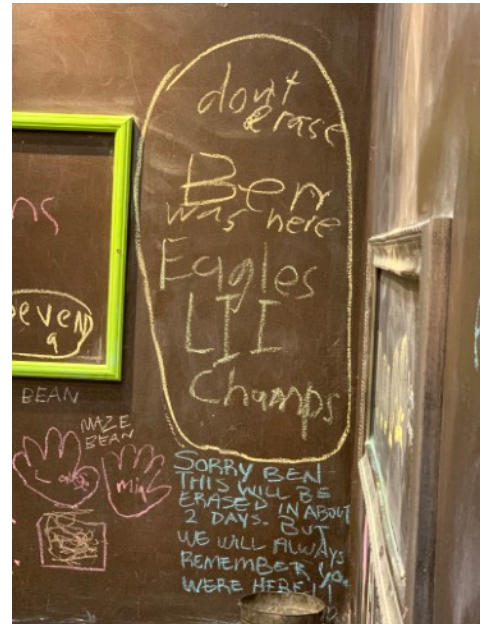 don't
erase
Ben
was here
Eagles
LII
Champs
ns
BEAN
MAZE
BEAN
mia
SORRY BEN
THIS WILL BE
ERASED IN ABOUT
2 DAYS. BUT
WE WILL ALWAYS
REMEMBER you
WERE HERE!!